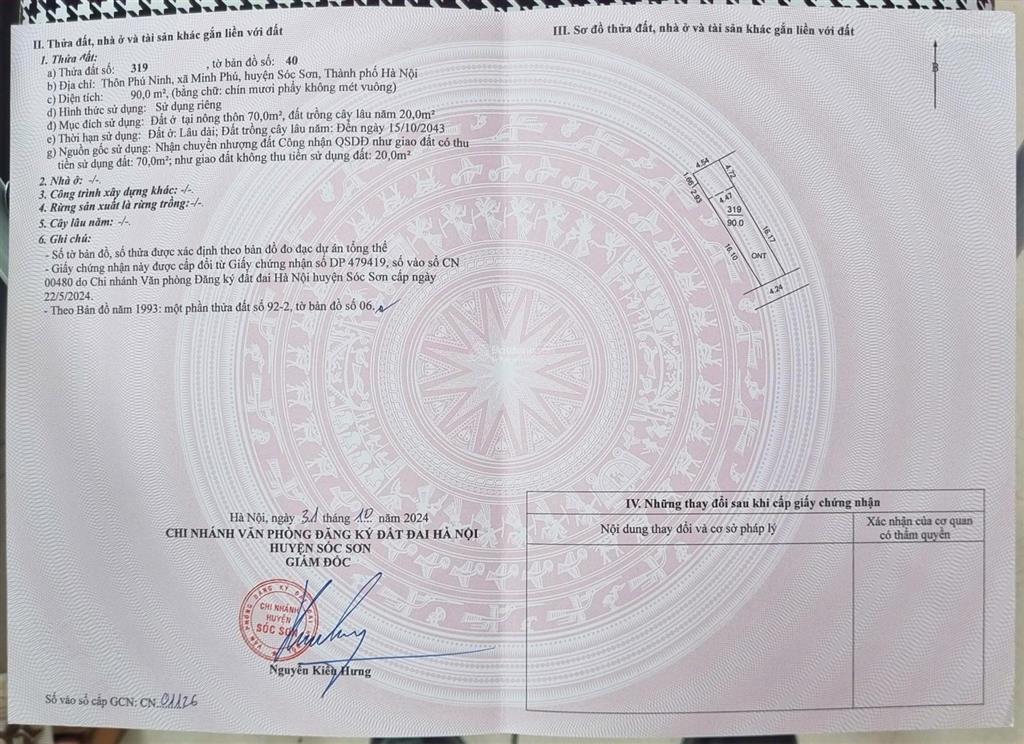 II. Thửa đất, nhà ở và tài sản khác gắn liền với đất
1. Thửa đất:
a) Thửa đất số: 319 , tờ bản đồ số: 40
b) Địa chỉ: Thôn Phú Ninh, xã Minh Phú, huyện Sóc Sơn, Thành phố Hà Nội
c) Diện tích: 90,0 m², (bằng chữ: chín mươi phẩy không mét vuông)
d) Hình thức sử dụng: Sử dụng riêng
đ) Mục đích sử dụng: Đất ở tại nông thôn 70,0m², đất trồng cây lâu năm 20,0m²
e) Thời hạn sử dụng: Đất ở: Lâu dài; Đất trồng cây lâu năm: Đến ngày 15/10/2043
g) Nguồn gốc sử dụng: Nhận chuyển nhượng đất Công nhận QSDĐ như giao đất có thu
tiền sử dụng đất: 70,0m²; như giao đất không thu tiền sử dụng đất: 20,0m²
2. Nhà ở: -/-.
3. Công trình xây dựng khác: -/-.
4. Rừng sản xuất là rừng trồng:-/-.
5. Cây lâu năm: -/-.
6. Ghi chú:
- Số tờ bản đồ, số thửa được xác định theo bản đồ đo đạc dự án tổng thể
- Giấy chứng nhận này được cấp đổi từ Giấy chứng nhận số DP 479419, số vào sổ CN
00480 do Chi nhánh Văn phòng Đăng ký đất đai Hà Nội huyện Sóc Sơn cấp ngày
22/5/2024.
- Theo Bản đồ năm 1993: một phần thửa đất số 92-2, tờ bản đồ số 06.
Hà Nội, ngày 31 tháng 10 năm 2024
CHI NHÁNH VĂN PHÒNG ĐĂNG KÝ ĐẤT ĐAI HÀ NỘI
HUYỆN SÓC SƠN
GIÁM ĐỐC
CHI NHÁNH
HUYỆN
SÓC SƠN
Nguyễn Kiên Hưng
Số vào sổ cấp GCN: CN 01126
III. Sơ đồ thửa đất, nhà ở và tài sản khác gắn liền với đất
B
4.54
4.72
1.66
2.93
4.47
319
90.0
16.17
16.10
ONT
4.24
IV. Những thay đổi sau khi cấp giấy chứng nhận
Nội dung thay đổi và cơ sở pháp lý
Xác nhận của cơ quan
có thẩm quyền